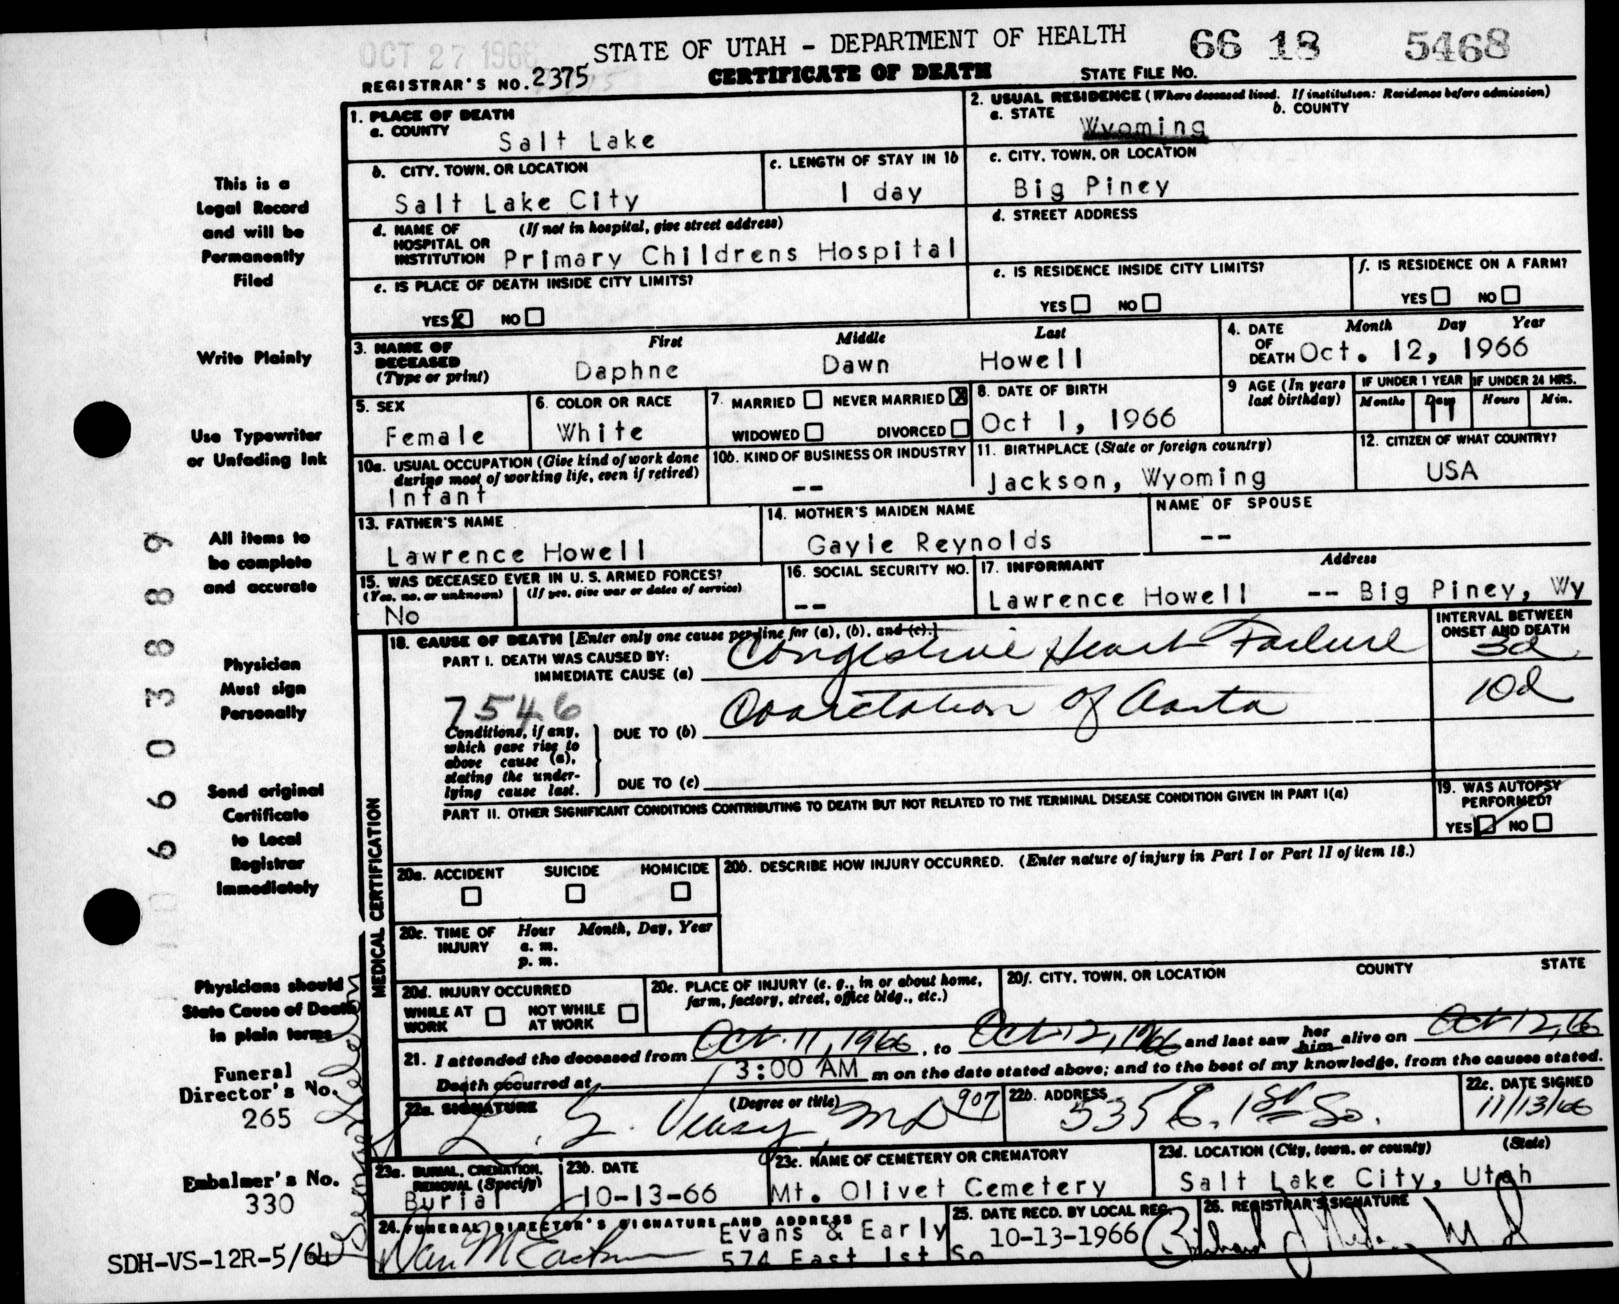 OCT 27 1966
STATE OF UTAH - DEPARTMENT OF HEALTH
66 18 5468
REGISTRAR'S NO. 2375
CERTIFICATE OF DEATH
STATE FILE NO.
1. PLACE OF DEATH
a. COUNTY
Salt Lake
2. USUAL RESIDENCE (Where deceased lived. If institution: Residence before admission)
a. STATE
Wyoming
b. COUNTY
b. CITY, TOWN, OR LOCATION
Salt Lake City
c. LENGTH OF STAY IN 1b
1 day
c. CITY, TOWN, OR LOCATION
Big Piney
d. NAME OF HOSPITAL OR INSTITUTION (If not in hospital, give street address)
Primary Childrens Hospital
d. STREET ADDRESS
e. IS PLACE OF DEATH INSIDE CITY LIMITS?
YES X NO
e. IS RESIDENCE INSIDE CITY LIMITS?
YES NO
f. IS RESIDENCE ON A FARM?
YES NO
3. NAME OF DECEASED (Type or print)
First Middle Last
Daphne Dawn Howell
4. DATE OF DEATH Month Day Year
Oct. 12, 1966
5. SEX
Female
6. COLOR OR RACE
White
7. MARRIED NEVER MARRIED X
WIDOWED DIVORCED
8. DATE OF BIRTH
Oct 1, 1966
9 AGE (In years last birthday)
IF UNDER 1 YEAR
Months Days
11
IF UNDER 24 HRS.
Hours Min.
10a. USUAL OCCUPATION (Give kind of work done during most of working life, even if retired)
Infant
10b. KIND OF BUSINESS OR INDUSTRY
--
11. BIRTHPLACE (State or foreign country)
Jackson, Wyoming
12. CITIZEN OF WHAT COUNTRY?
USA
13. FATHER'S NAME
Lawrence Howell
14. MOTHER'S MAIDEN NAME
Gayle Reynolds
NAME OF SPOUSE
--
15. WAS DECEASED EVER IN U. S. ARMED FORCES?
(Yes, no, or unknown) (If yes, give war or dates of service)
No
16. SOCIAL SECURITY NO.
--
17. INFORMANT Address
Lawrence Howell -- Big Piney, Wy
MEDICAL CERTIFICATION
18. CAUSE OF DEATH [Enter only one cause per line for (a), (b), and (c).]
INTERVAL BETWEEN ONSET AND DEATH
PART I. DEATH WAS CAUSED BY:
IMMEDIATE CAUSE (a) Congestive Heart Failure 3d
7546
DUE TO (b) Coarctation of Aorta 10d
Conditions, if any, which gave rise to above cause (a), stating the underlying cause last.
DUE TO (c)
PART II. OTHER SIGNIFICANT CONDITIONS CONTRIBUTING TO DEATH BUT NOT RELATED TO THE TERMINAL DISEASE CONDITION GIVEN IN PART I(a)
19. WAS AUTOPSY PERFORMED?
YES NO
20a. ACCIDENT SUICIDE HOMICIDE
20b. DESCRIBE HOW INJURY OCCURRED. (Enter nature of injury in Part I or Part II of item 18.)
20c. TIME OF INJURY Hour Month, Day, Year
a. m.
p. m.
20d. INJURY OCCURRED
WHILE AT WORK NOT WHILE AT WORK
20e. PLACE OF INJURY (e. g., in or about home, farm, factory, street, office bldg., etc.)
20f. CITY, TOWN, OR LOCATION COUNTY STATE
21. I attended the deceased from Oct. 11, 1966, to Oct 12, 1966 and last saw her him alive on Oct 12, 66
Death occurred at 3:00 AM m on the date stated above; and to the best of my knowledge, from the causes stated.
22a. SIGNATURE (Degree or title)
L. G. Veasy, MD 907
22b. ADDRESS
535 E. 1st So.
22c. DATE SIGNED
11/13/66
23a. BURIAL, CREMATION, REMOVAL (Specify)
Burial
23b. DATE
10-13-66
23c. NAME OF CEMETERY OR CREMATORY
Mt. Olivet Cemetery
23d. LOCATION (City, town, or county) (State)
Salt Lake City, Utah
24. FUNERAL DIRECTOR'S SIGNATURE AND ADDRESS
Evans & Early
574 East 1st So
25. DATE RECD. BY LOCAL REG.
10-13-1966
26. REGISTRAR'S SIGNATURE
This is a Legal Record and will be Permanently Filed
Write Plainly
Use Typewriter or Unfading Ink
All items to be complete and accurate
Physician Must sign Personally
Send original Certificate to Local Registrar Immediately
Physicians should State Cause of Death in plain terms
Funeral Director's No.
265
Embalmer's No.
330
SDH-VS-12R-5/64
66 03889